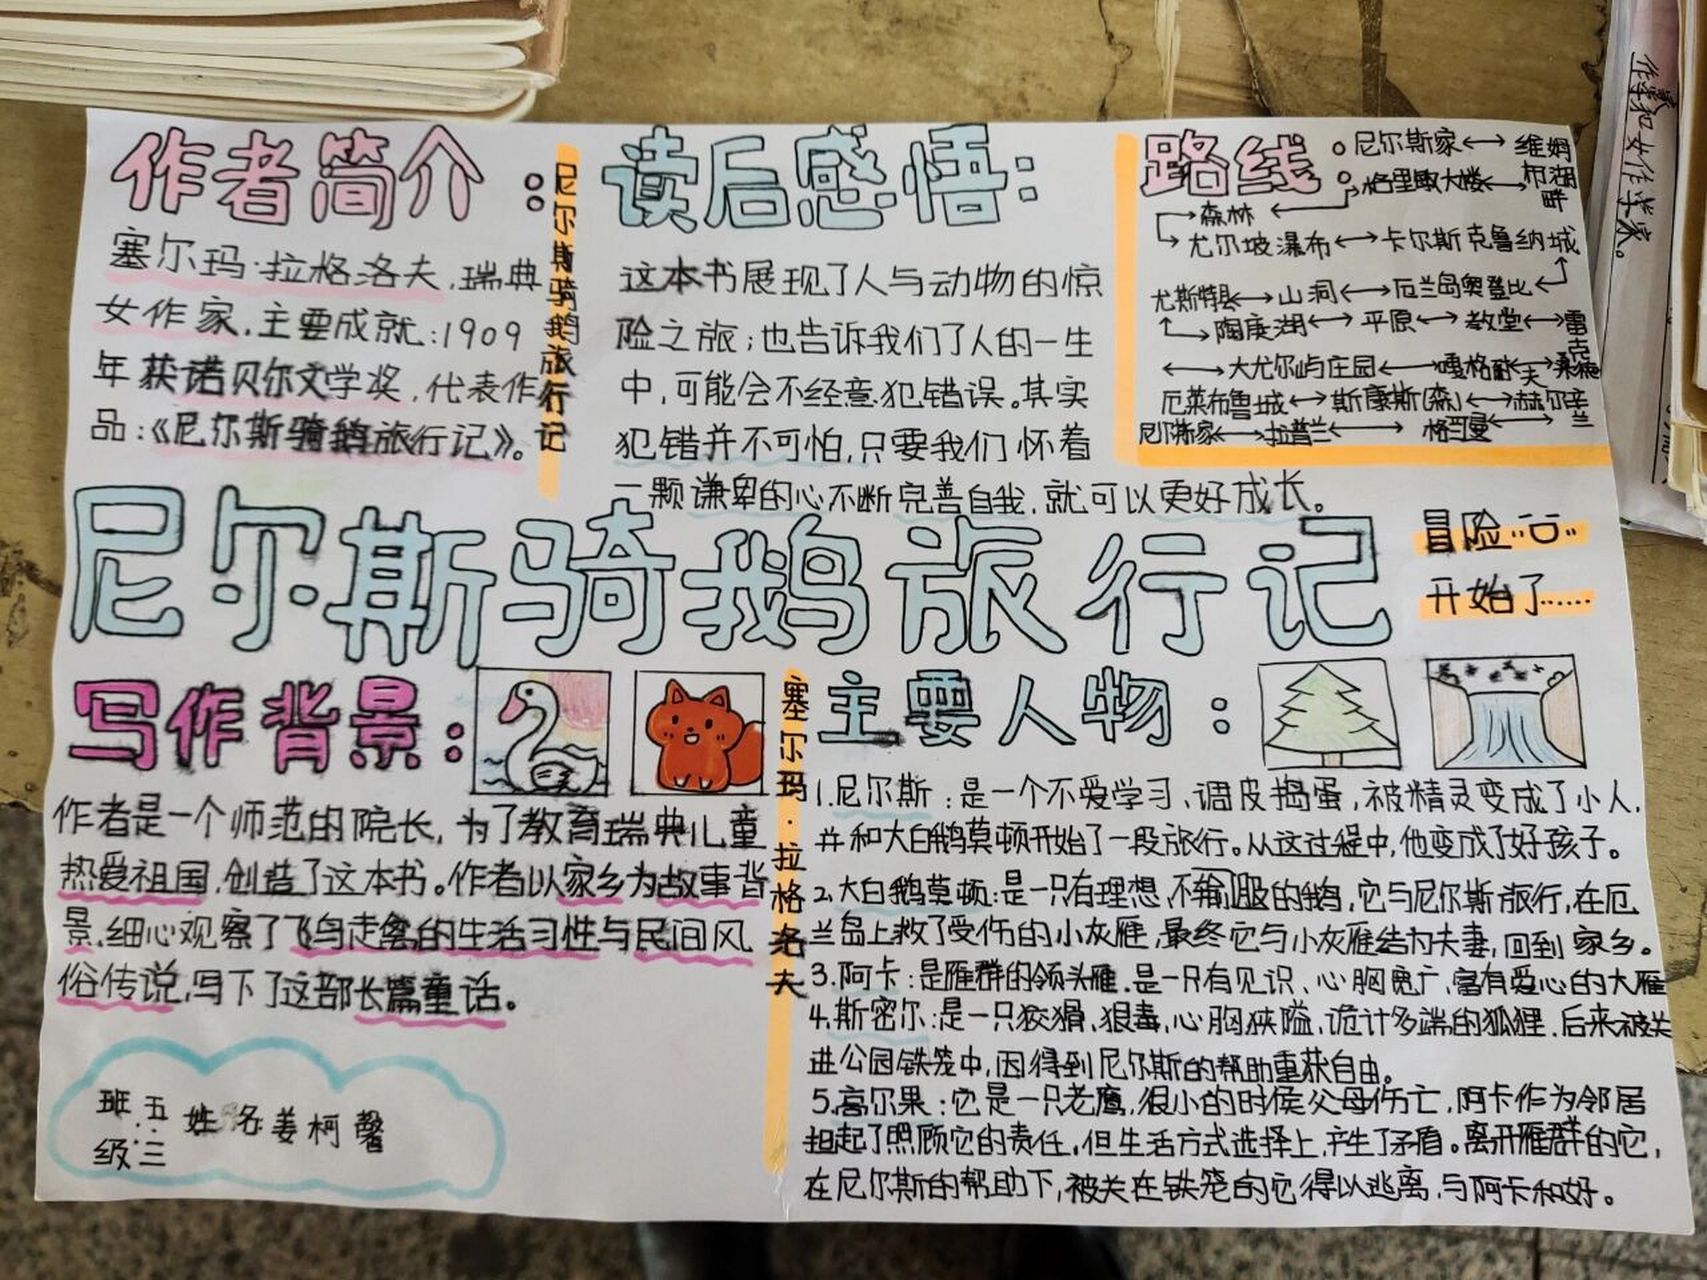 作者简介：
塞尔玛·拉格洛夫，瑞典
女作家，主要成就：1909
年获诺贝尔文学奖，代表作
品：《尼尔斯骑鹅旅行记》。
尼尔斯骑鹅旅行记
读后感悟：
这本书展现了人与动物的惊
险之旅；也告诉我们了人的一生
中，可能会不经意犯错误。其实
犯错并不可怕，只要我们怀着
一颗谦卑的心不断完善自我，就可以更好成长。
路线：
尼尔斯家↔维姆
布湖
畔
格里敏大楼
森林
尤尔坡瀑布↔卡尔斯克鲁纳城
尤斯特县↔山洞↔厄兰岛奥登比
陶庚湖↔平原↔教堂↔雷
克
桑德
大尤尔屿庄园↔嘎格
厄莱布鲁城↔斯康斯(森)↔赫尔辛
兰
尼尔斯家↔拉普兰↔
尼尔斯骑鹅旅行记
冒险
开始了……
写作背景：
作者是一个师范的院长，为了教育瑞典儿童
热爱祖国，创造了这本书。作者以家乡为故事背
景，细心观察了飞鸟走禽的生活习性与民间风
俗传说，写下了这部长篇童话。
塞尔玛·拉格洛夫
主要人物：
1.尼尔斯：是一个不爱学习、调皮捣蛋，被精灵变成了小人，
并和大白鹅莫顿开始了一段旅行。从这过程中，他变成了好孩子。
2.大白鹅莫顿：是一只有理想，不输服的鹅，它与尼尔斯旅行，在厄
兰岛上救了受伤的小灰雁，最终它与小灰雁结为夫妻，回到家乡。
3.阿卡：是雁群的领头雁，是一只有见识、心胸宽广，富有爱心的大雁
4.斯密尔：是一只狡猾，狠毒，心胸狭隘，诡计多端的狐狸，后来被关
进公园铁笼中，因得到尼尔斯的帮助重获自由。
5.高尔果：它是一只老鹰，很小的时候父母伤亡，阿卡作为邻居
担起了照顾它的责任，但生活方式选择上，产生了矛盾。离开雁群的它，
在尼尔斯的帮助下，被关在铁笼的它得以逃离，与阿卡和好。
班级：五三
姓名姜柯馨